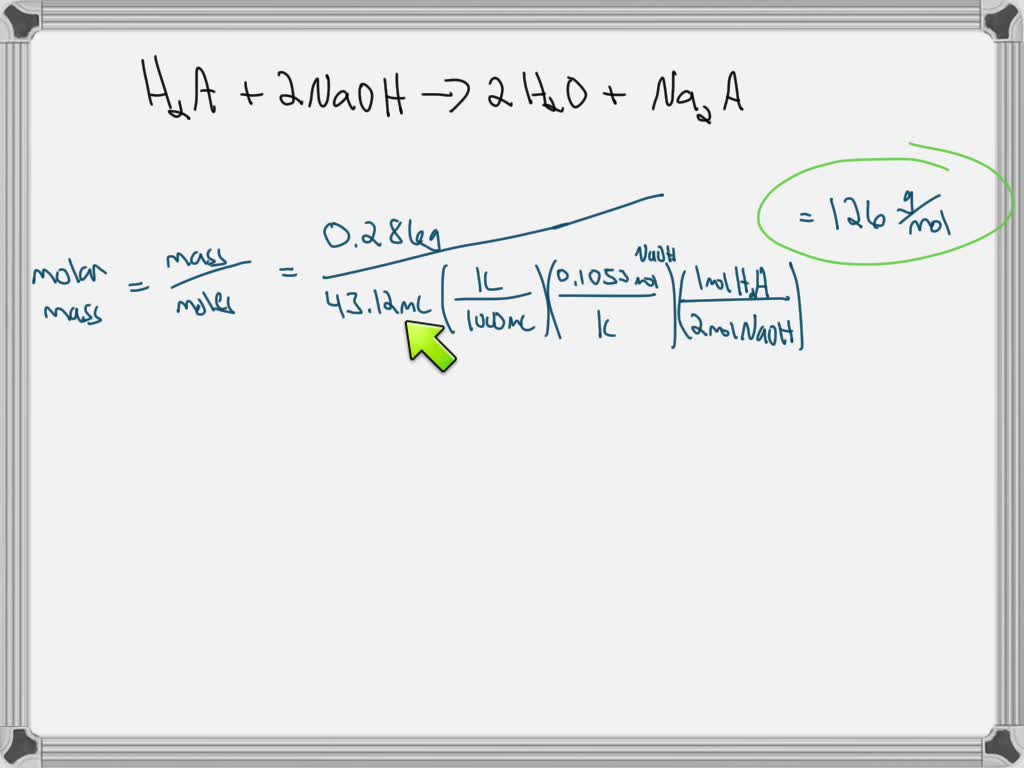 H₂A + 2NaOH → 2H₂O + Na₂A
molar mass = mass/moles = 0.286g / 43.12mL (1L/1000mL)(0.1053 mol NaOH/1L)(1mol H₂A/2mol NaOH)
= 126 g/mol